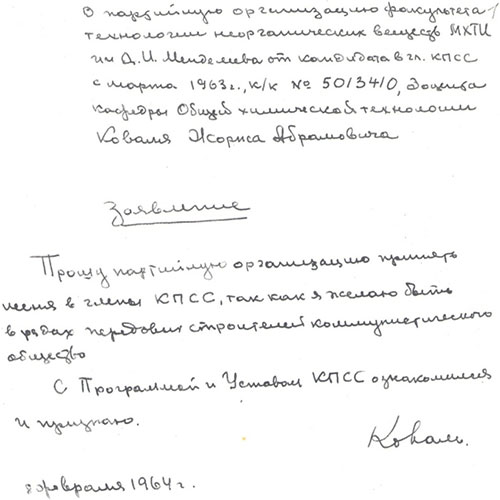 В партийную организацию факультета
технологии неорганических веществ МХТИ
им Д.И. Менделеева от кандидата в чл. КПСС
с марта 1963г., к/к № 5013410, доцента
кафедры Общей химической технологии
Коваля Жоржа Абрамовича
Заявление
Прошу партийную организацию принять
меня в члены КПСС, так как я желаю быть
в рядах передовых строителей коммунистического
общества
С Программой и Уставом КПСС ознакомился
и признаю.
Коваль.
февраля 1964г.